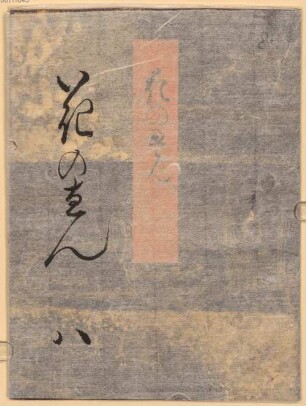 花のゑん
花のゑん 八